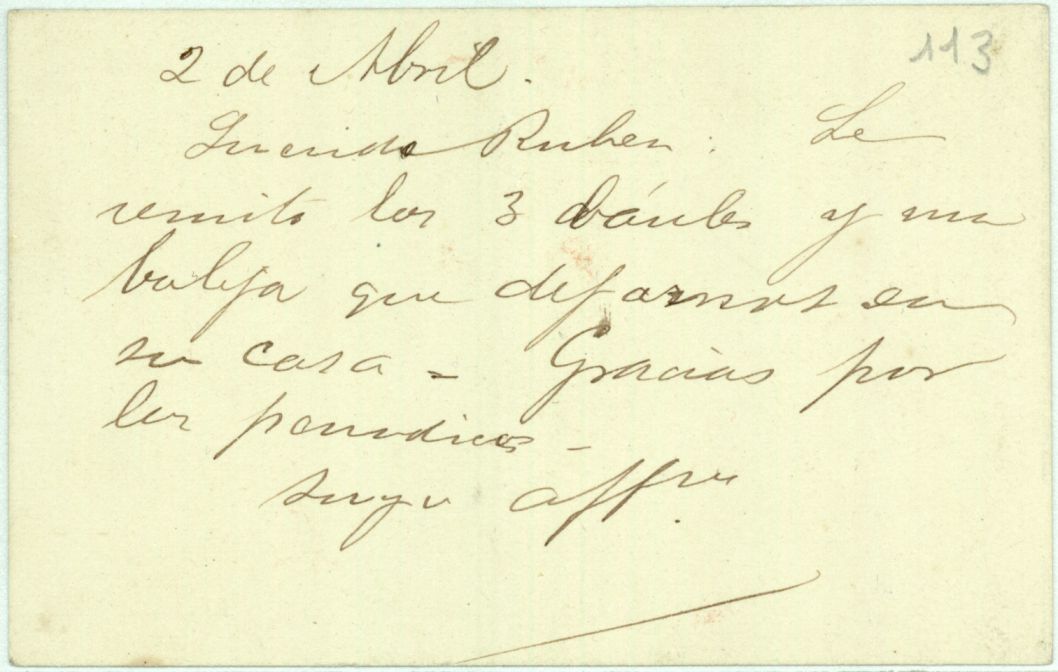 113
2 de Abril.
Querido Ruben: Le
remito los 3 báules y una
balija que dejamos en
su casa - Gracias por
los periodicos -
suyo affmo.